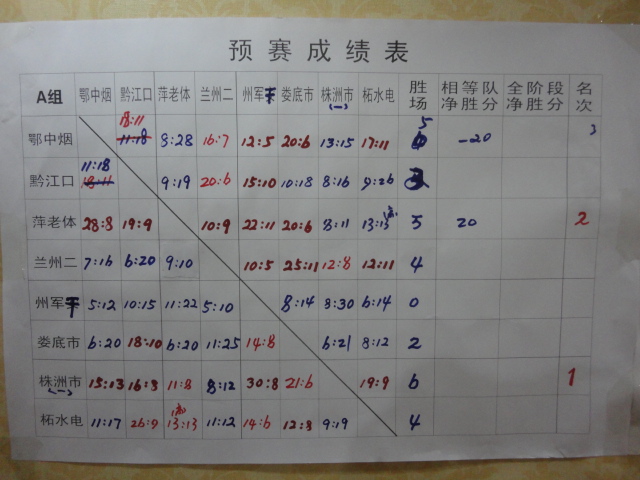 预赛成绩表
A组 鄂中烟 黔江口 萍老体 兰州二 州军干 娄底市 株洲市(一) 柘水电 胜场 相等队净胜分 全阶段净胜分 名次
鄂中烟 18:11 11:18 8:28 16:7 12:5 20:6 13:15 17:11 5 -20 3
黔江口 11:18 18:11 9:19 20:6 15:10 10:18 8:16 9:26
萍老体 28:8 19:9 10:9 22:11 20:6 8:11 13:13 5 20 2
兰州二 7:16 6:20 9:10 10:5 25:11 12:8 12:11 4
州军干 5:12 10:15 11:22 5:10 8:14 8:30 6:14 0
娄底市 6:20 18:10 6:20 11:25 14:8 6:21 8:12 2
株洲市(一) 15:13 16:8 11:8 8:12 30:8 21:6 19:9 6 1
柘水电 11:17 26:9 13:13 11:12 14:6 12:8 9:19 4